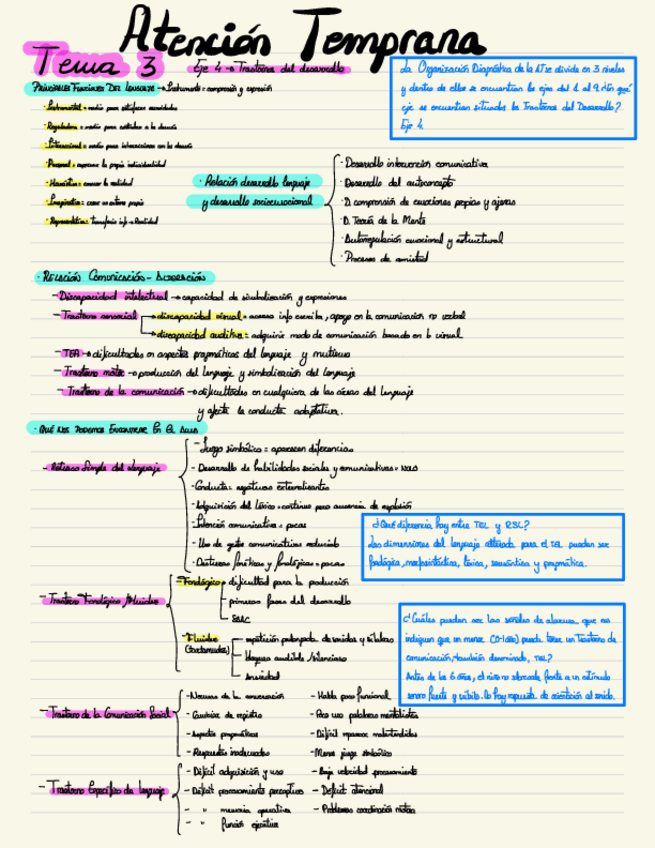 Atención Temprana
Tema 3
Eje 4 → Trastornos del desarrollo
La Organización Diagnóstica de la ATse divide en 3 niveles
y dentro de ellos se encuentran los ejes del 1 al 9. ¿En qué
eje se encuentran situados los Trastornos del Desarrollo?
Eje 4
PRINCIPALES FUNCIONES DEL LENGUAJE → Instrumento = comprensión y expresión
· Instrumental = medio para satisfacer necesidades
· Reguladora = medio para controlar a los demás
· Interaccional = medio para interaccionar con los demás
· Personal = expresar la propia individualidad
· Heurística = conocer la realidad
· Imaginativa = crear un entorno propio
· Representativa: Transferir info → Realidad
· Relación desarrollo lenguaje
y desarrollo socioemocional
· Desarrollo intención comunicativa
· Desarrollo del autoconcepto
· D. comprensión de emociones propias y ajenas
· D. Teoría de la Mente
· Autorregulación emocional y estructural
· Procesos de amistad
· RELACIÓN COMUNICACIÓN - ALTERACIÓN
- Discapacidad intelectual → capacidad de simbolización y expresiones
- Trastorno sensorial → discapacidad visual = acceso info escrita, apoyo en la comunicación no verbal
→ discapacidad auditiva = adquirir modo de comunicación basado en lo visual
- TEA → dificultades en aspectos pragmáticos del lenguaje y mutismo
- Trastorno motor → producción del lenguaje y simbolización del lenguaje
- Trastorno de la comunicación → dificultades en cualquiera de las áreas del lenguaje
y afecta la conducta adaptativa.
· QUÉ NOS PODEMOS ENCONTRAR EN EL AULA
- Retraso Simple del lenguaje
- Juego simbólico = aparecen diferencias
- Desarrollo de habilidades sociales y comunicativas =
- Conducta = negativas externalizantes
- Adquisición del léxico = continuo pero ausencia de explosión
- Intención comunicativa = pocas
- Uso de gestos comunicativos reducido
- fonéticas y fonológicas = pocas
¿Qué diferencia hay entre TEL y RSL?
Las dimensiones del lenguaje alteradas para el TEL pueden ser
fonológica, morfosintáctica, léxica, semántica y pragmática.
- Trastorno Fonológico/Fluidez
- Fonológico → dificultad para la producción
primeras fases del desarrollo
SAAC
- Fluidez
(tartamudez)
repetición prolongada de sonidos y sílabas
bloqueo audible/silencioso
Ansiedad
¿Cuáles pueden ser las señales de alarma que nos
indiquen que un menor (0-1año) pueda tener un Trastorno de
comunicación, también denominado, TEL?
Antes de los 6 años, el niño no sobresale frente a un estímulo
sonoro fuerte y súbito. No hay respuesta de orientación al sonido.
- Trastorno de la Comunicación Social
- Normas de la conversación
- Cambios de registro
- Aspectos pragmáticos
- Respuestas inadecuadas
- Habla poco funcional
- Poco uso palabras mentalistas
- Difícil reparar malentendidos
- Menos juego simbólico
- Trastorno Específico del lenguaje
- Difícil adquisición y uso
- Déficit procesamiento perceptivo
- " memoria operativa
- " función ejecutiva
- Baja velocidad procesamiento
- Déficit atencional
- Problemas coordinación motora